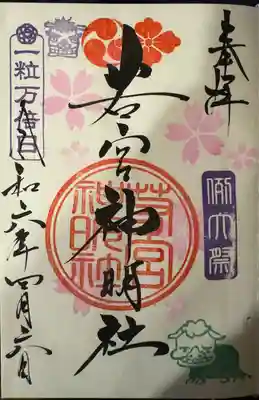 奉拝
例大祭
若宮神明社
若宮神明社
一粒万倍日
令和六年四月六日